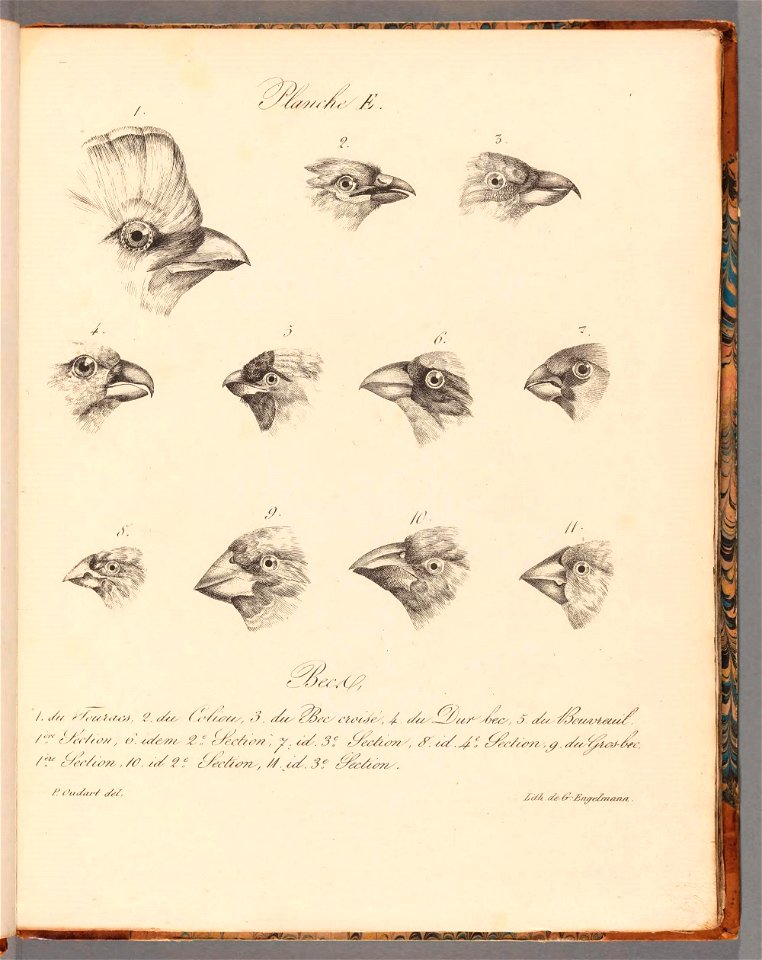 Planche E.
1. 2. 3.
4. 5. 6. 7.
8. 9. 10. 11.
Becs,
1. du Touracs, 2. du Coliou, 3. du Bec croisé, 4. du Dur bec, 5. du Bouvreuil.
1ère Section, 6. idem 2e Section, 7. id. 3e Section, 8. id. 4e Section, 9. du Gros-bec,
1ère Section, 10. id 2e Section, 11. id. 3e Section.
P. Oudart del.
Lith. de G. Engelmann.